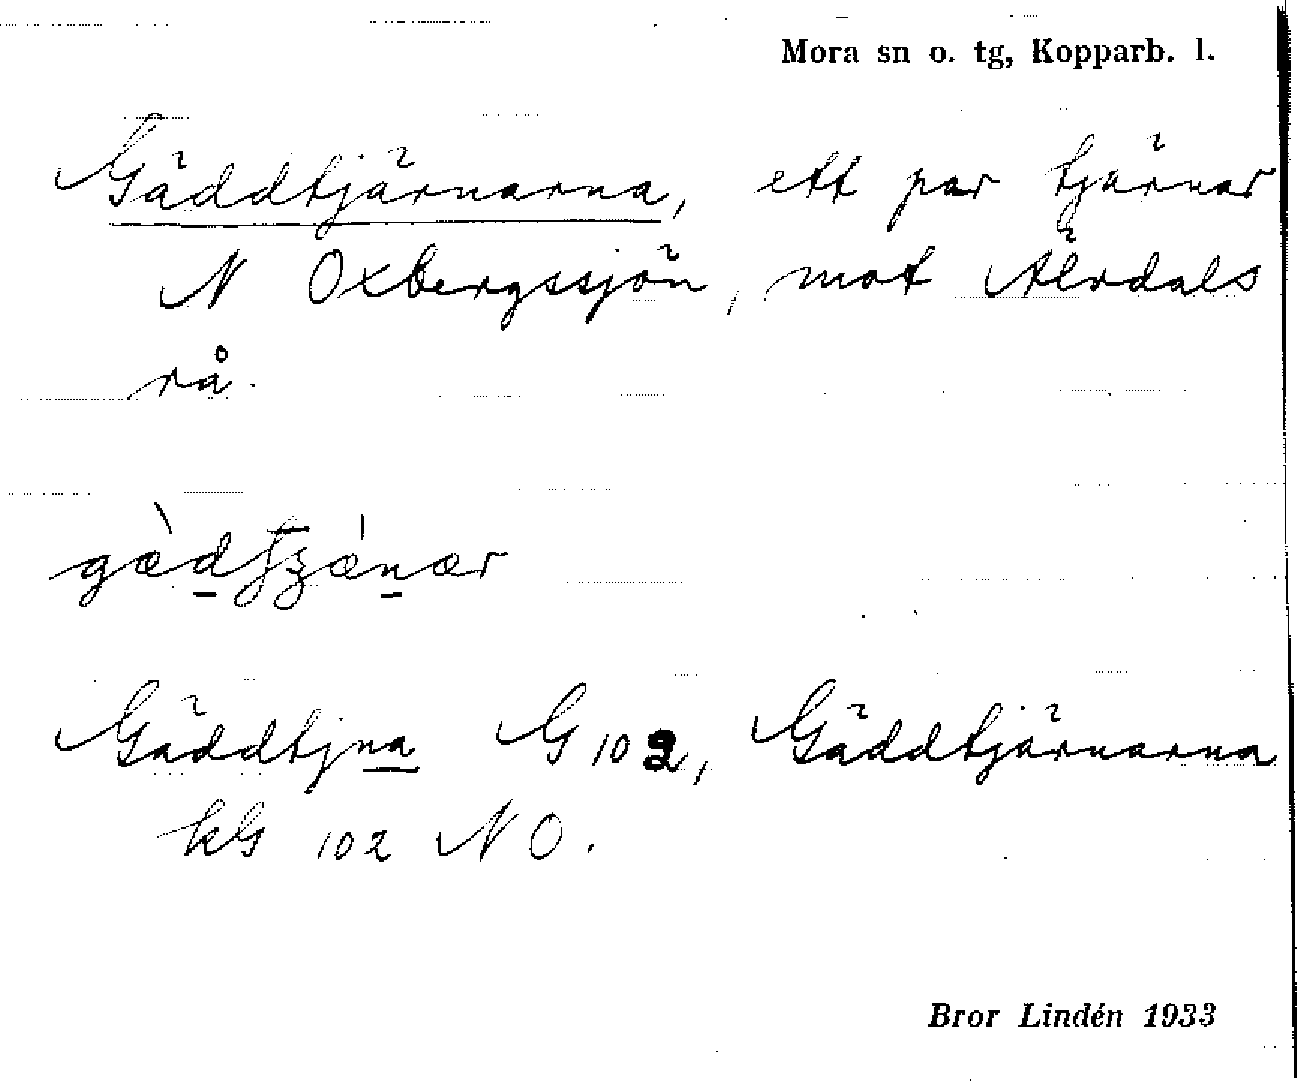 Mora sn o. tg, Kopparb. l.
Gäddtjärnarna, ett par tjärnar
N Oxbergssjön, mot Älvdals
rå.
Gäddtjna G 102, Gäddtjärnarna
kG 102 NO.
Bror Lindén 1933